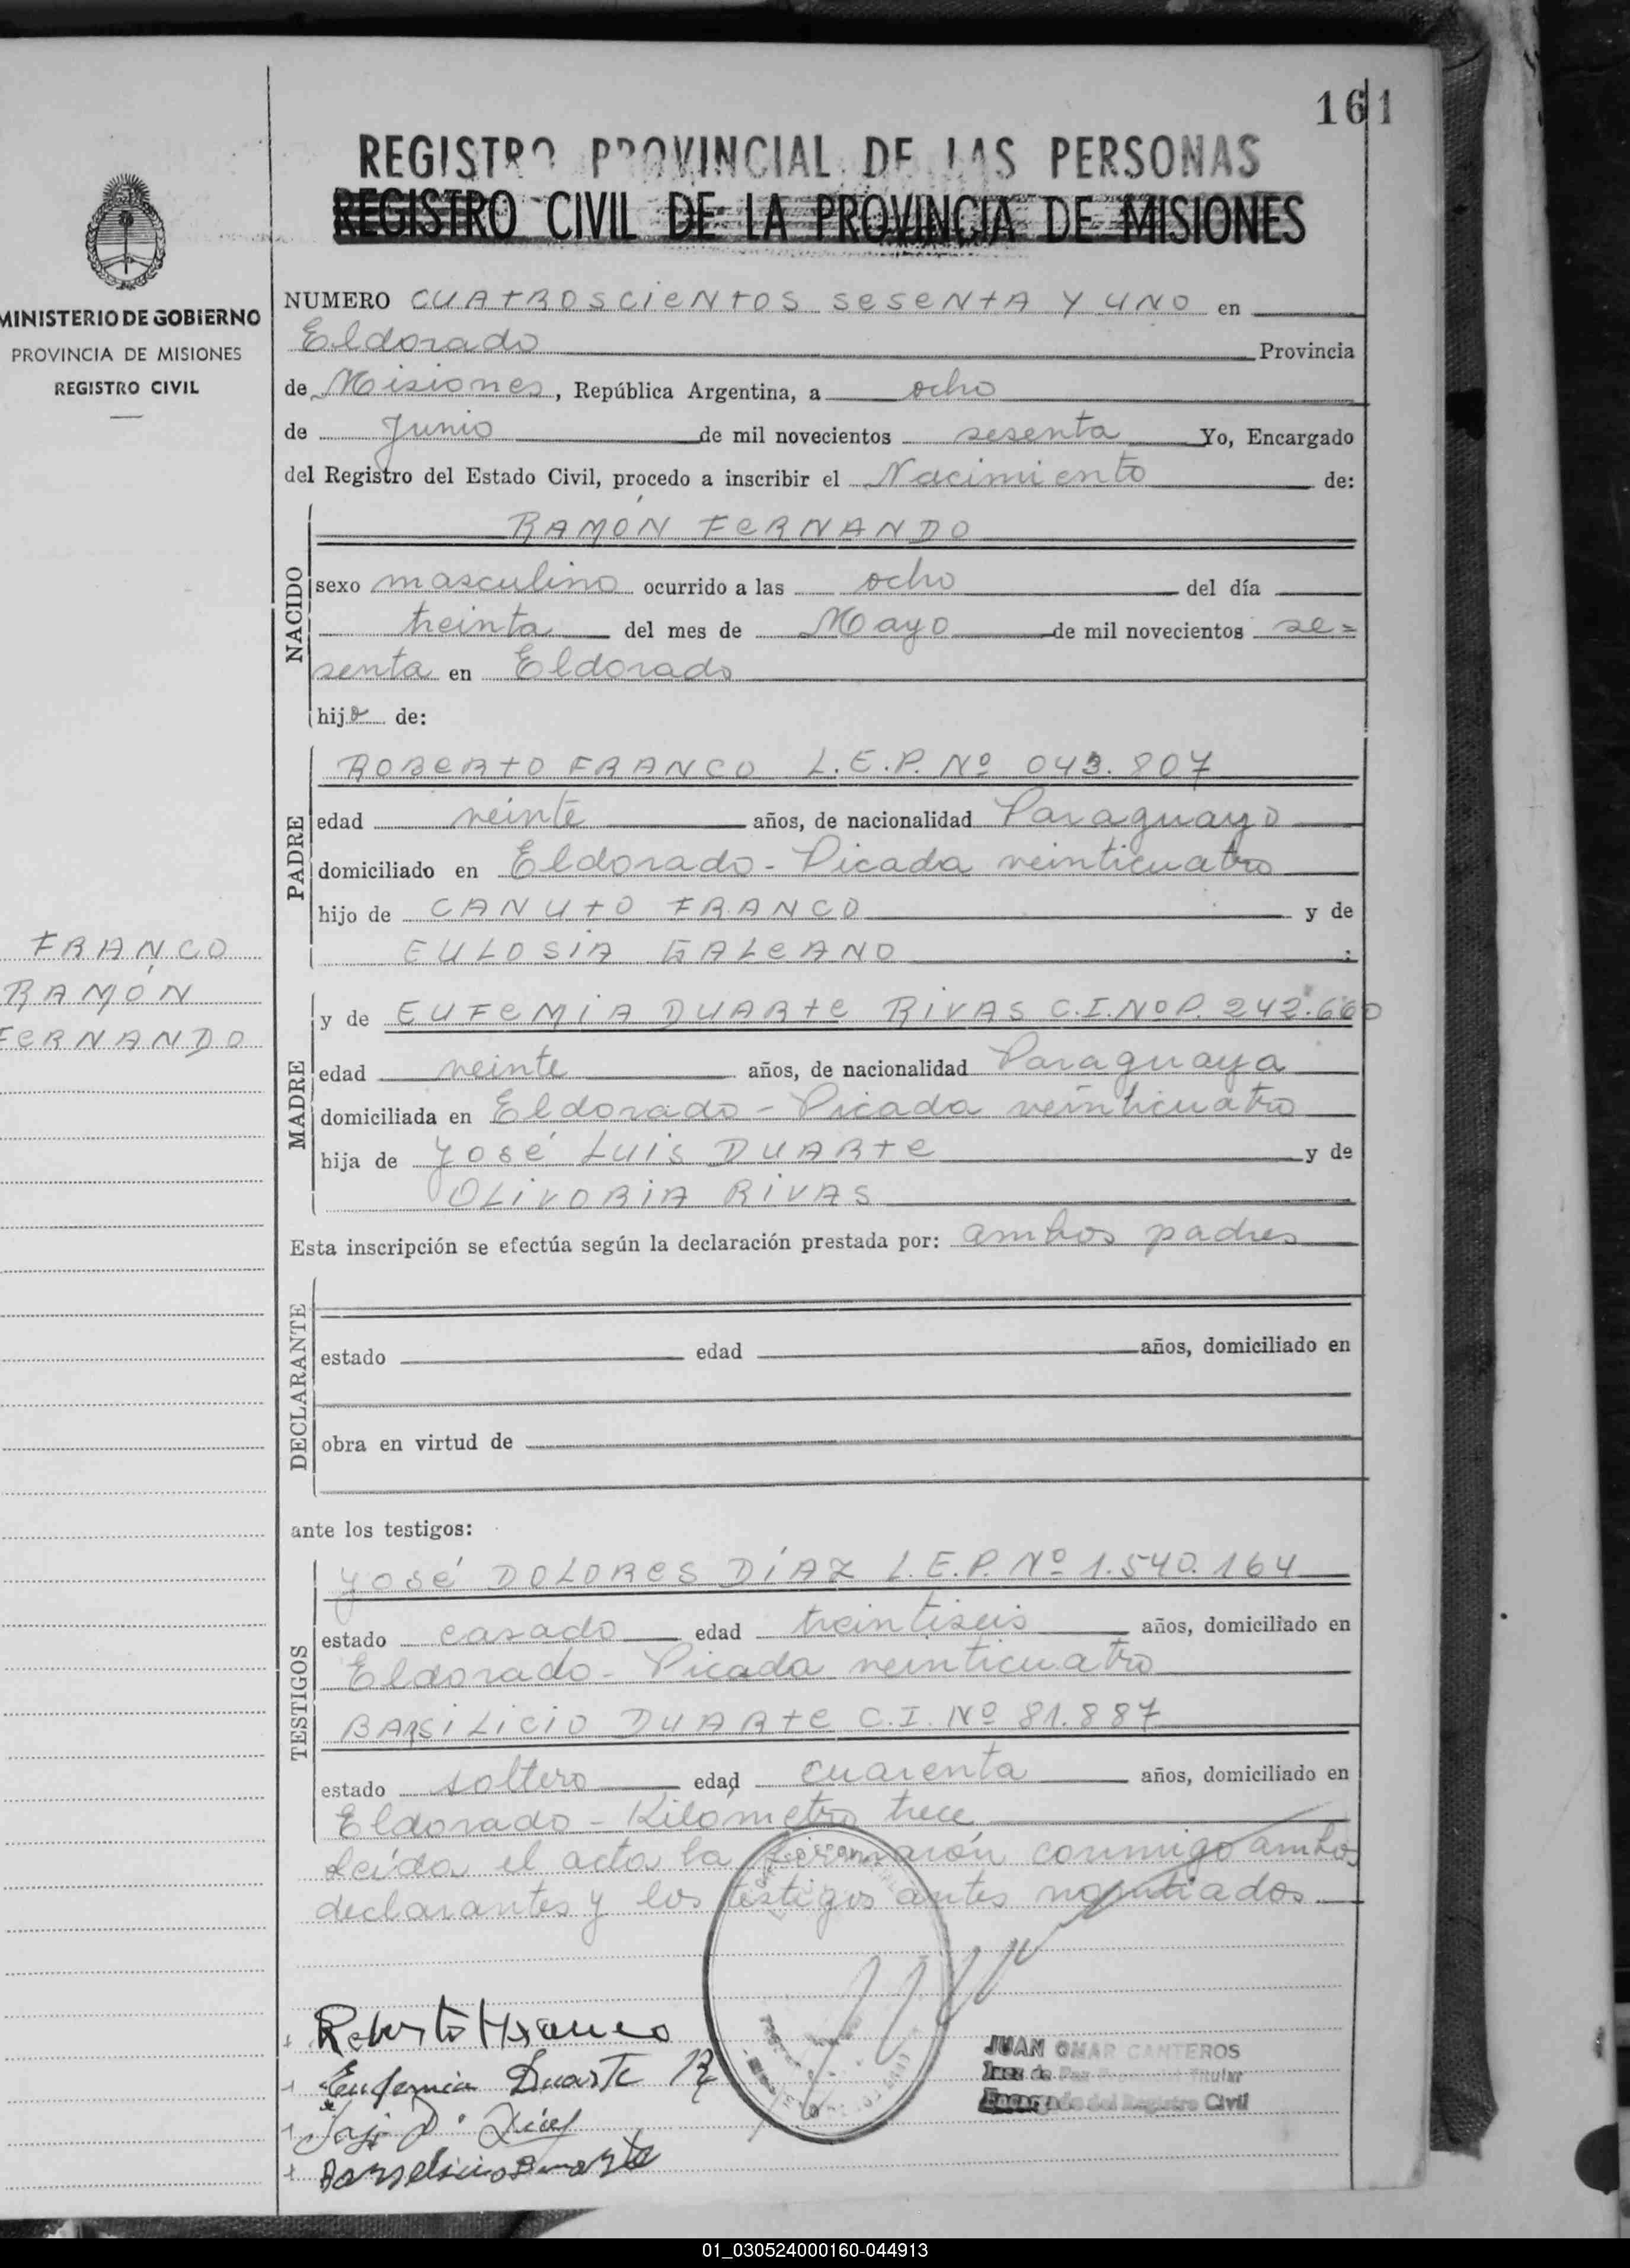 161
REGISTRO PROVINCIAL DE LAS PERSONAS
REGISTRO CIVIL DE LA PROVINCIA DE MISIONES
MINISTERIO DE GOBIERNO
PROVINCIA DE MISIONES
REGISTRO CIVIL
FRANCO
RAMÓN
FERNANDO
NUMERO CUATROSCIENTOS SESENTA Y UNO en
Eldorado Provincia
de Misiones, República Argentina, a ocho
de Junio de mil novecientos sesenta Yo, Encargado
del Registro del Estado Civil, procedo a inscribir el Nacimiento de:
NACIDO
RAMÓN FERNANDO
sexo masculino ocurrido a las ocho del día
treinta del mes de Mayo de mil novecientos se=
senta en Eldorado
hijo de:
PADRE
ROBERTO FRANCO L.E.P. Nº 043.807
edad veinte años, de nacionalidad Paraguayo
domiciliado en Eldorado - Picada veinticuatro
hijo de CANUTO FRANCO y de
EULOSIA GALEANO :
MADRE
y de EUFEMIA DUARTE RIVAS C.I.NºP. 242.660
edad veinte años, de nacionalidad Paraguaya
domiciliada en Eldorado - Picada veinticuatro
hija de JOSÉ LUIS DUARTE y de
OLIVORIA RIVAS
Esta inscripción se efectúa según la declaración prestada por: ambos padres
DECLARANTE
estado edad años, domiciliado en
obra en virtud de
ante los testigos:
TESTIGOS
JOSÉ DOLORES DÍAZ L.E.P. Nº 1.540.164
estado casado edad treintiseis años, domiciliado en
Eldorado - Picada veinticuatro
BARSILICIO DUARTE C.I. Nº 81.887
estado soltero edad cuarenta años, domiciliado en
Eldorado - Kilómetro trece
Leída el acta la firmarón conmigo ambos
declarantes y los testigos antes nombrados.
Roberto Franco
Eufemia Duarte R
José D. Díaz
Barselicio Duarte
JUAN OMAR CANTEROS
Juez de Paz Provincial Titular
Encargado del Registro Civil
01_030524000160-044913